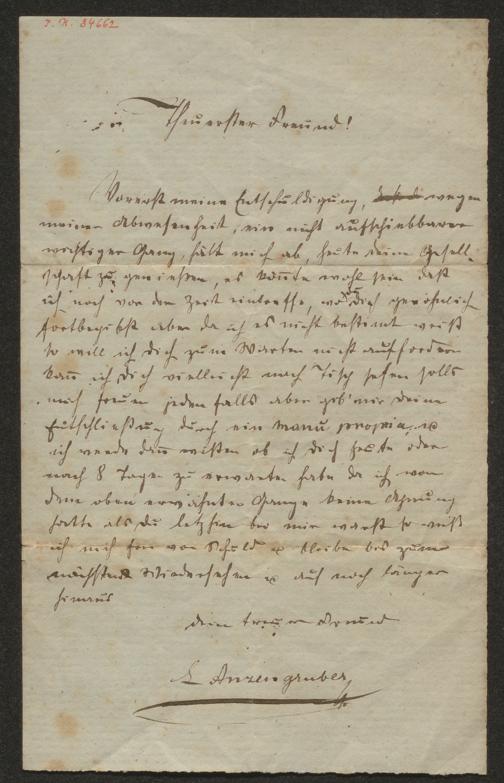 I. N. 34662
Theuerster Freund!
Vorerst meine Entschuldigung, wegen
meiner Abwesenheit, ein nicht aufschiebbarer
wichtiger Gang, hält mich ab, heute deine Gesell-
schaft zu genießen, es könnte wohl sein daß
ich noch vor der Zeit eintreffe, wo du dich gewöhnlich
fortbegibst aber da ich es nicht bestimt weiß
so will ich dich zum Warten nicht auffordern
kann ich dich vielleicht nach Tisch sehen solls
mich freuen jeden falls aber gib mir deine
Entschließung durch ein manu propria, 
ich werde dan wißen ob ich dich heute oder
nach 8 Tagen zu erwarten habe da ich von
dem oben erwähnten Gange keine Ahnung
hatte als du letzhin bei mir warst so weiß
ich mich frei von Schuld & bleibe bis zum
nächsten Wiedersehn & auf noch länger
hinaus
dein treuer Freund
L Anzengruber